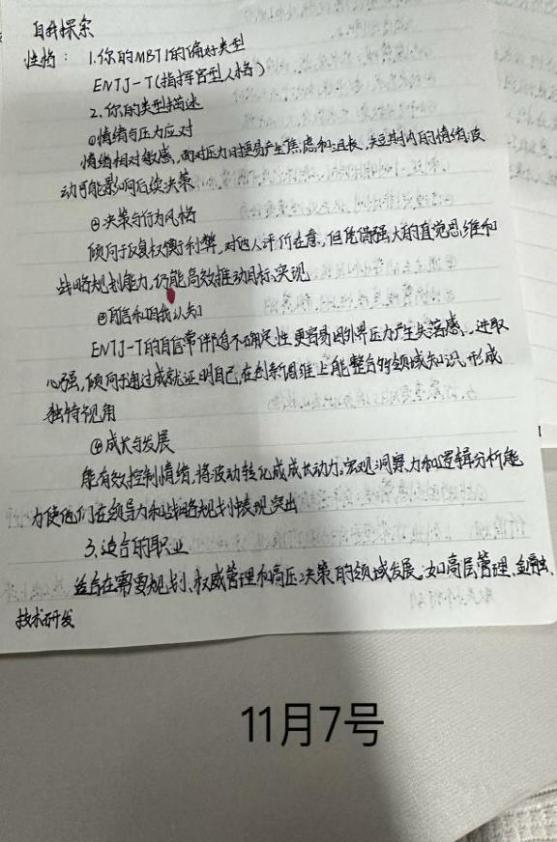 自我探索
性格：1.你的MBTI的偏好类型
ENTJ-T(指挥官型人格)
2.你的类型描述
①情绪与压力应对
情绪相对敏感，面对压力时更易产生焦虑和沮丧，短期内的情绪波
动可能影响后续决策
②决策与行为风格
倾向于反复权衡利弊，对他人评价在意，但凭借强大的直觉思维和
战略规划能力，仍能高效推动目标实现
③自信和自我认知
ENTJ-T的自信常伴随不确定性，更容易因外界压力产生失落感，进取
心强，倾向于通过成就证明自己，在创新思维上能整合多领域知识，形成
独特视角
④成长与发展
能有效控制情绪，将波动转化成成长动力，宏观洞察力和逻辑分析能
力使他们在领导力和战略规划中表现突出
3.适合的职业
适合在需要规划、权威管理和高压决策的领域发展，如高层管理、金融、
技术研发
11月7号